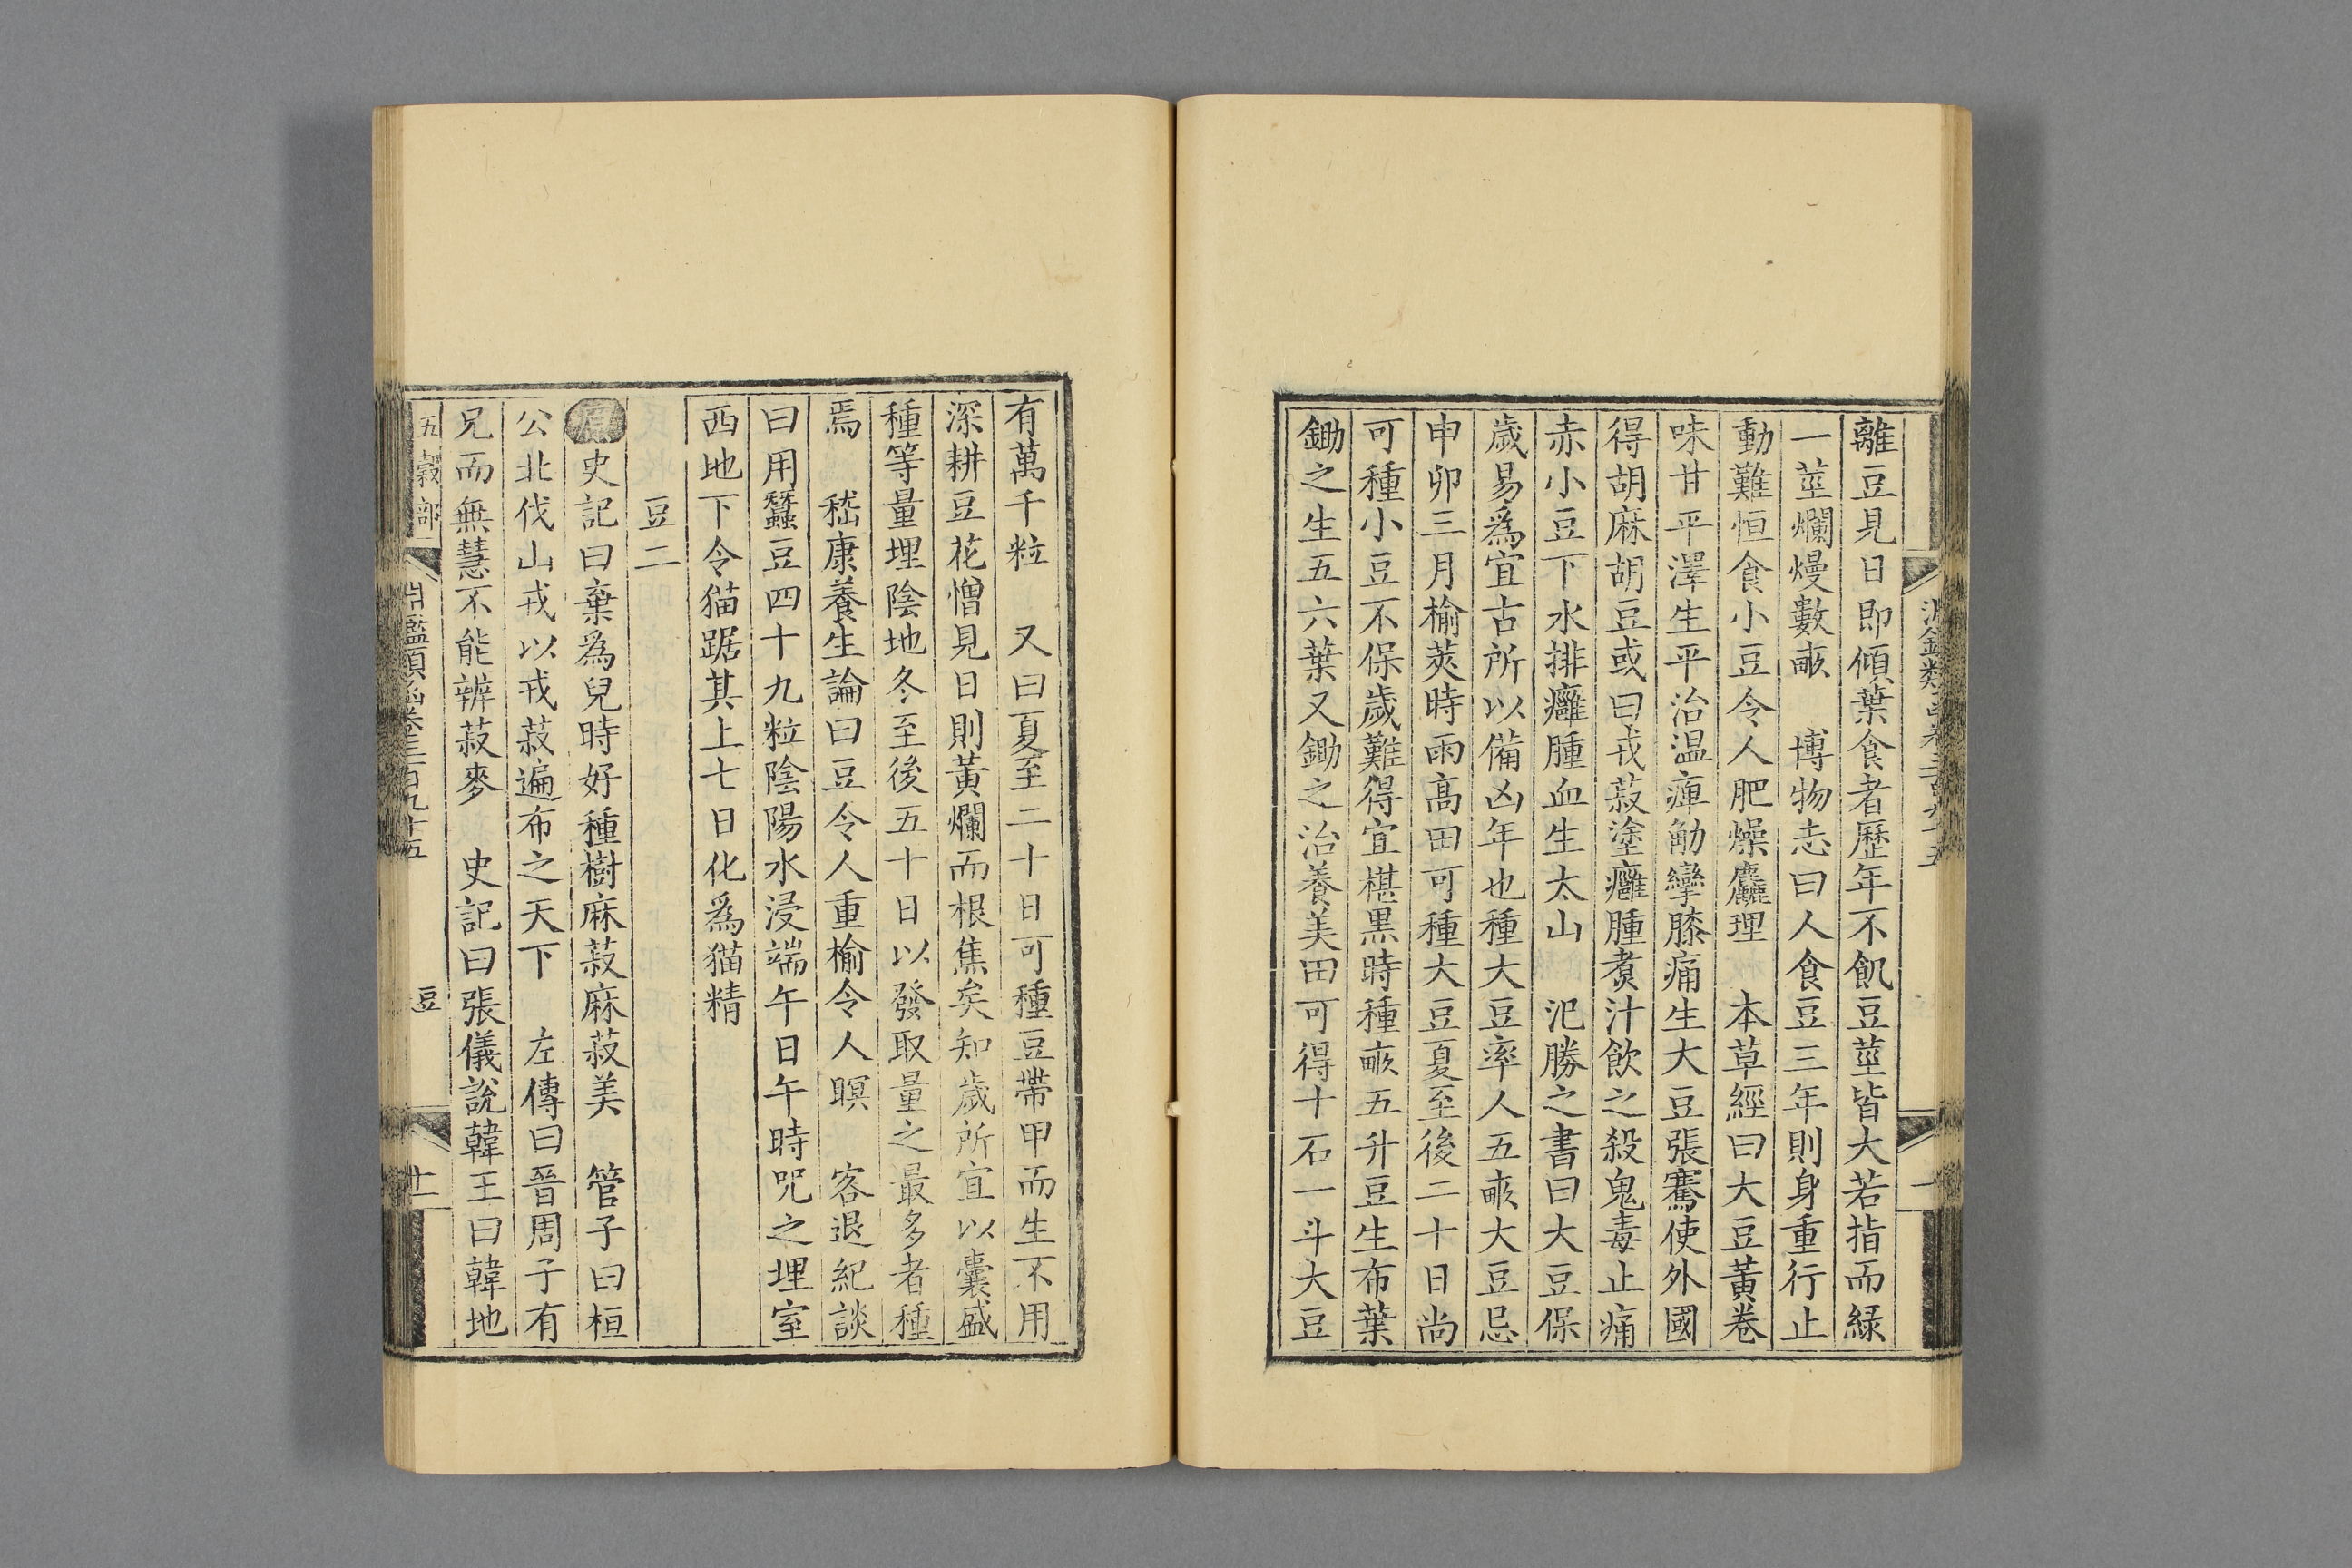 離豆見日即傾葉食者歷年不飢豆莖皆大若指而緑
一莖爛熳數畝　博物志曰人食豆三年則身重行止
動難恒食小豆令人肥燥麤理　本草經曰大豆黃卷
味甘平澤生平治温痺觔攣膝痛生大豆張騫使外國
得胡麻胡豆或曰戎菽塗癰腫煑汁飲之殺鬼毒止痛
赤小豆下水排癰腫血生太山　氾勝之書曰大豆保
歲易爲宜古所以備凶年也種大豆率人五畝大豆忌
申卯三月榆莢時雨高田可種大豆夏至後二十日尚
可種小豆不保歲難得宜椹黒時種畝五升豆生布葉
鋤之生五六葉又鋤之治養美田可得十石一斗大豆
有萬千粒　又曰夏至二十日可種豆帶甲而生不用
深耕豆花憎見日則黃爛而根焦矣知歲所宜以囊盛
種等量埋陰地冬至後五十日以發取量之最多者種
焉　嵇康養生論曰豆令人重榆令人瞑　客退紀談
曰用蠶豆四十九粒陰陽水浸端午日午時呪之埋室
西地下令猫踞其上七日化爲猫精
豆二
原史記曰棄爲兒時好種樹麻菽麻菽美　管子曰桓
公北伐山戎以戎菽遍布之天下　左傳曰晉周子有
兄而無慧不能辨菽麥　史記曰張儀說韓王曰韓地
五榖部　鑑類函卷三百九十五　豆　十一